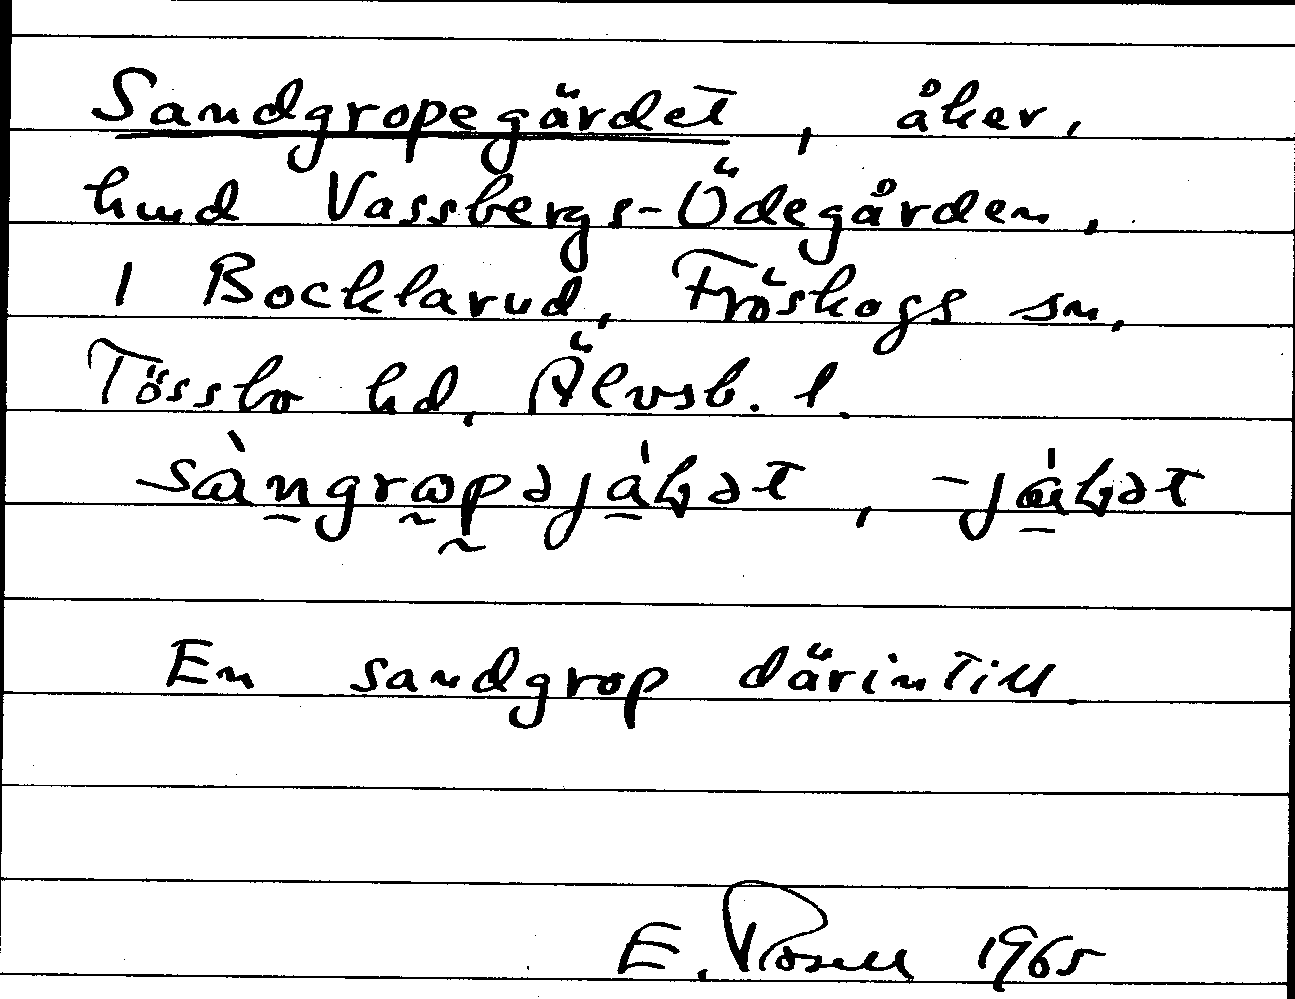 Sandgropegärdet, åker,
hmd Vassbergs-Ödegården,
1 Bocklarud, Fröskogs sn,
Tössbo hd, Älvsb. l.
sàngrɷpəjáḷət, -jǽḷət
En sandgrop därintill.
E. Rosell 1965